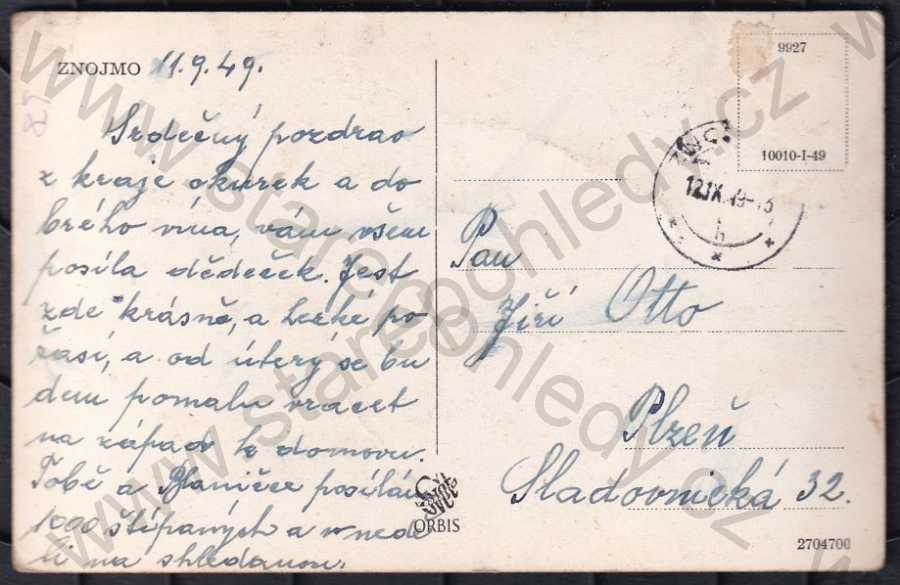 ZNOJMO 11.9.49.
Srdečný pozdrav
z kraje okurek a do
brého vína, vám všem
posílá dědeček. Jest
zde krásně, a hezké po
časí, a od úterý se bu
dem pomalu vracet
na západ k domovu.
Tobě a Blaničce posílám
1000 štípaných a v nedě
li na shledanou.
9927
10010-I-49
12.IX.49-13
h
Pan
Jiří Otto
Plzeň
Sladovnická 32.
ORBIS
2704700
www.starepohledy.cz